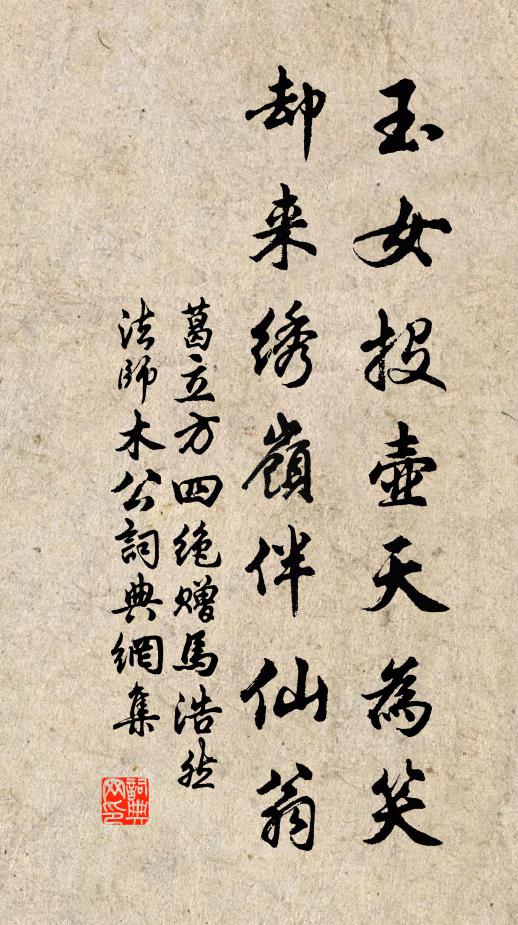 玉女投壶天為笑
却来绣嶺伴仙翁
葛立方四绝赠馬浩然
法師木公詞典網集
詞典网印